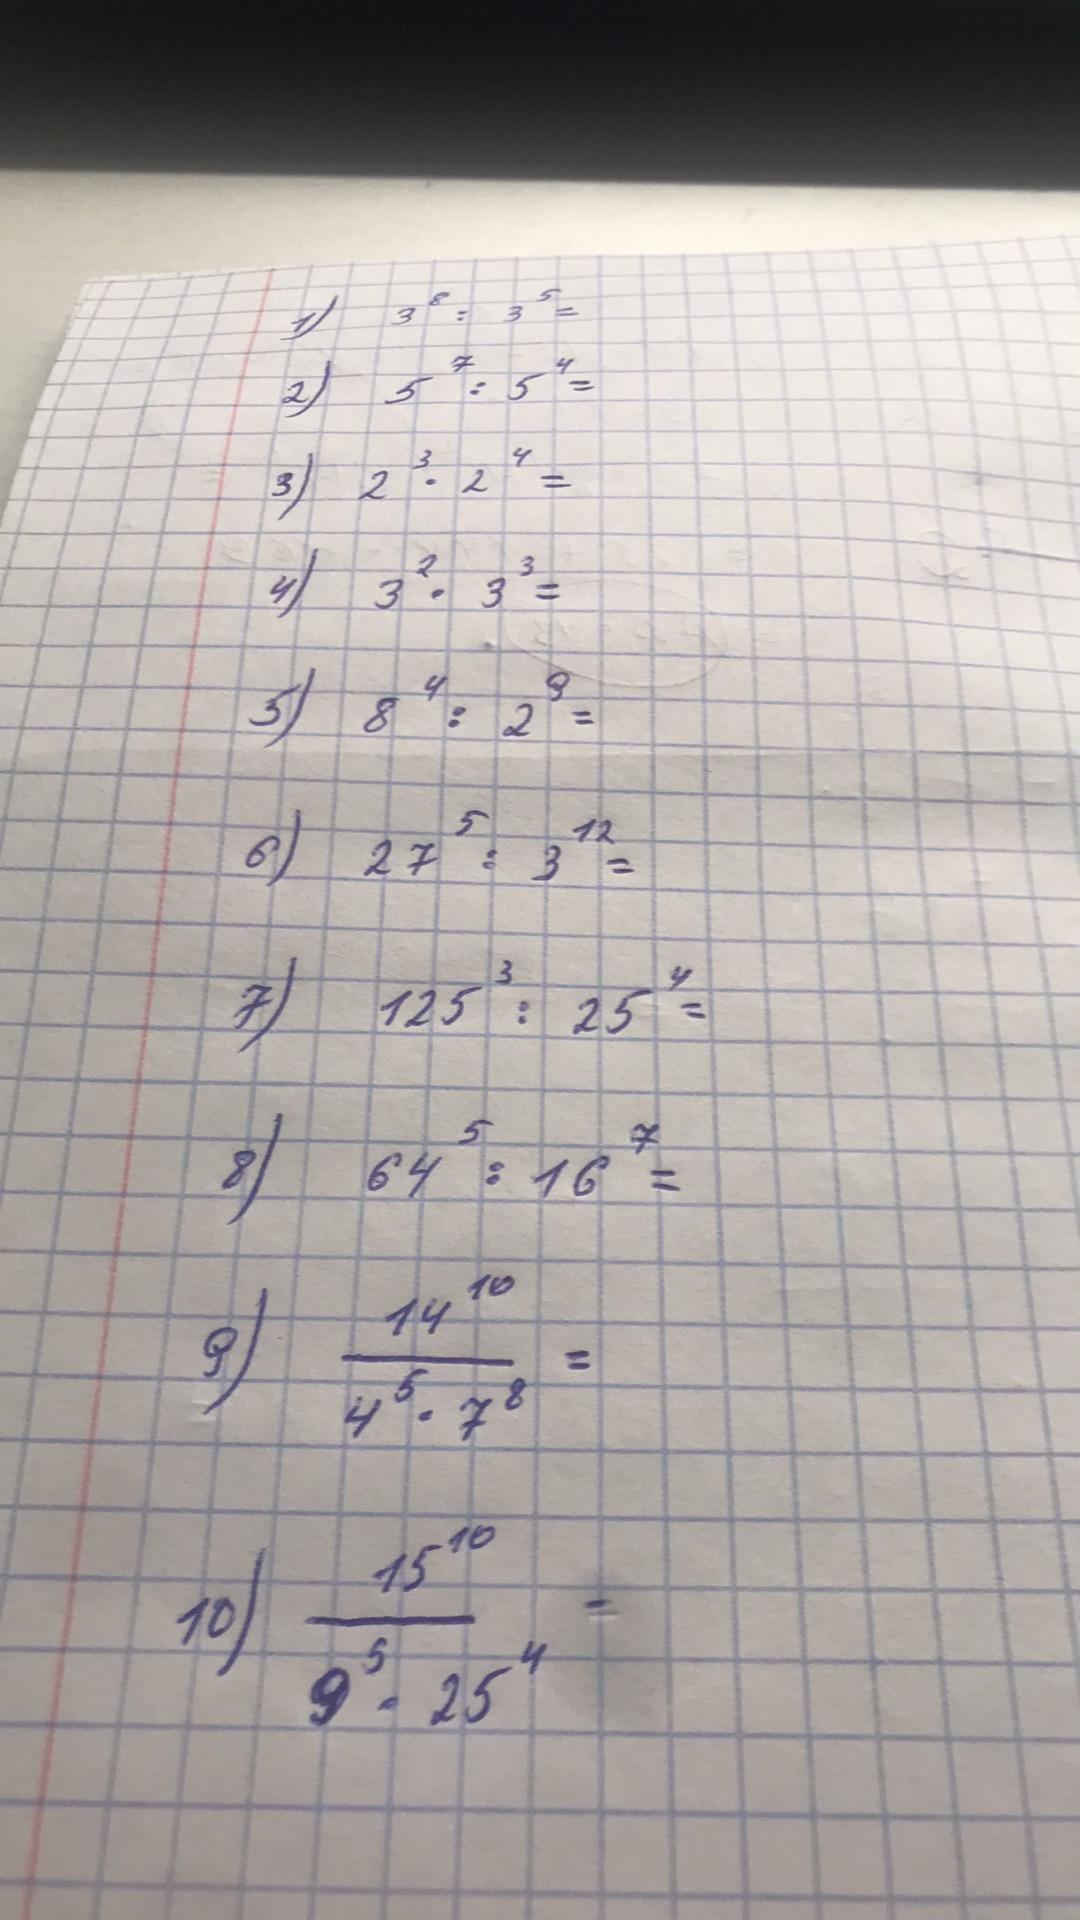 1) 3⁸ : 3⁵ =
2) 5⁷ : 5⁴ =
3) 2³ · 2⁴ =
4) 3² · 3³ =
5) 8⁴ : 2⁹ =
6) 27⁵ : 3¹² =
7) 125³ : 25⁴ =
8) 64⁵ : 16⁷ =
9) 14¹⁰ =
4⁵ · 7⁸
10) 15¹⁰ =
9⁵ · 25⁴